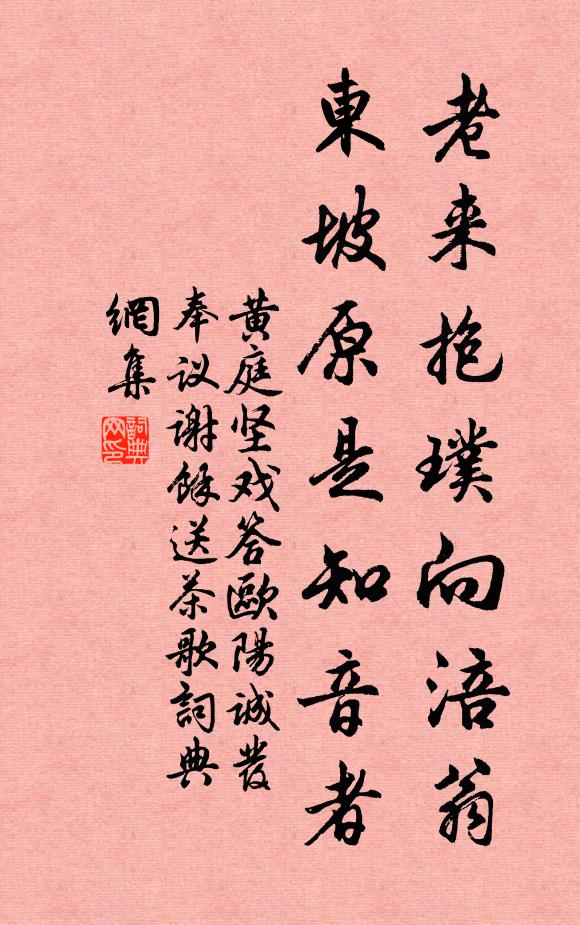 老来抱璞向涪翁
東坡原是知音者
黄庭坚戏答歐陽诚發
奉议谢餘送茶歌詞典
網集
詞典
网印